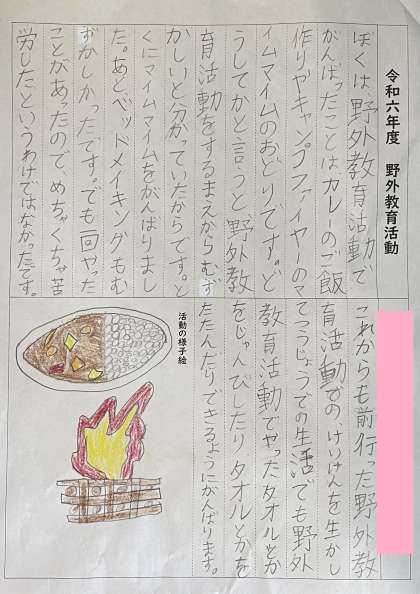 令和六年度　野外教育活動
ぼくは野外教育活動で
がんばったことは、カレーのご飯
作りやキャンプファイヤーのマ
イムマイムのおどりです。ど
うしてかと言うと野外教
育活動をするまえからむず
かしいと分かっていたからです。と
くにマイムマイムをがんばりまし
た。あとベッドメイキングもむ
ずかしかったです。でも一回やった
ことがあったので、めちゃくちゃ苦
労したというわけではなかったです。
これからも前行った野外教
育活動での、けいけんを生かし
てこうじょうでの生活でも野外
教育活動でやったタオルとか
をじゅんびしたり、タオルとかを
たたんだりできるようにがんばります。
活動の様子絵